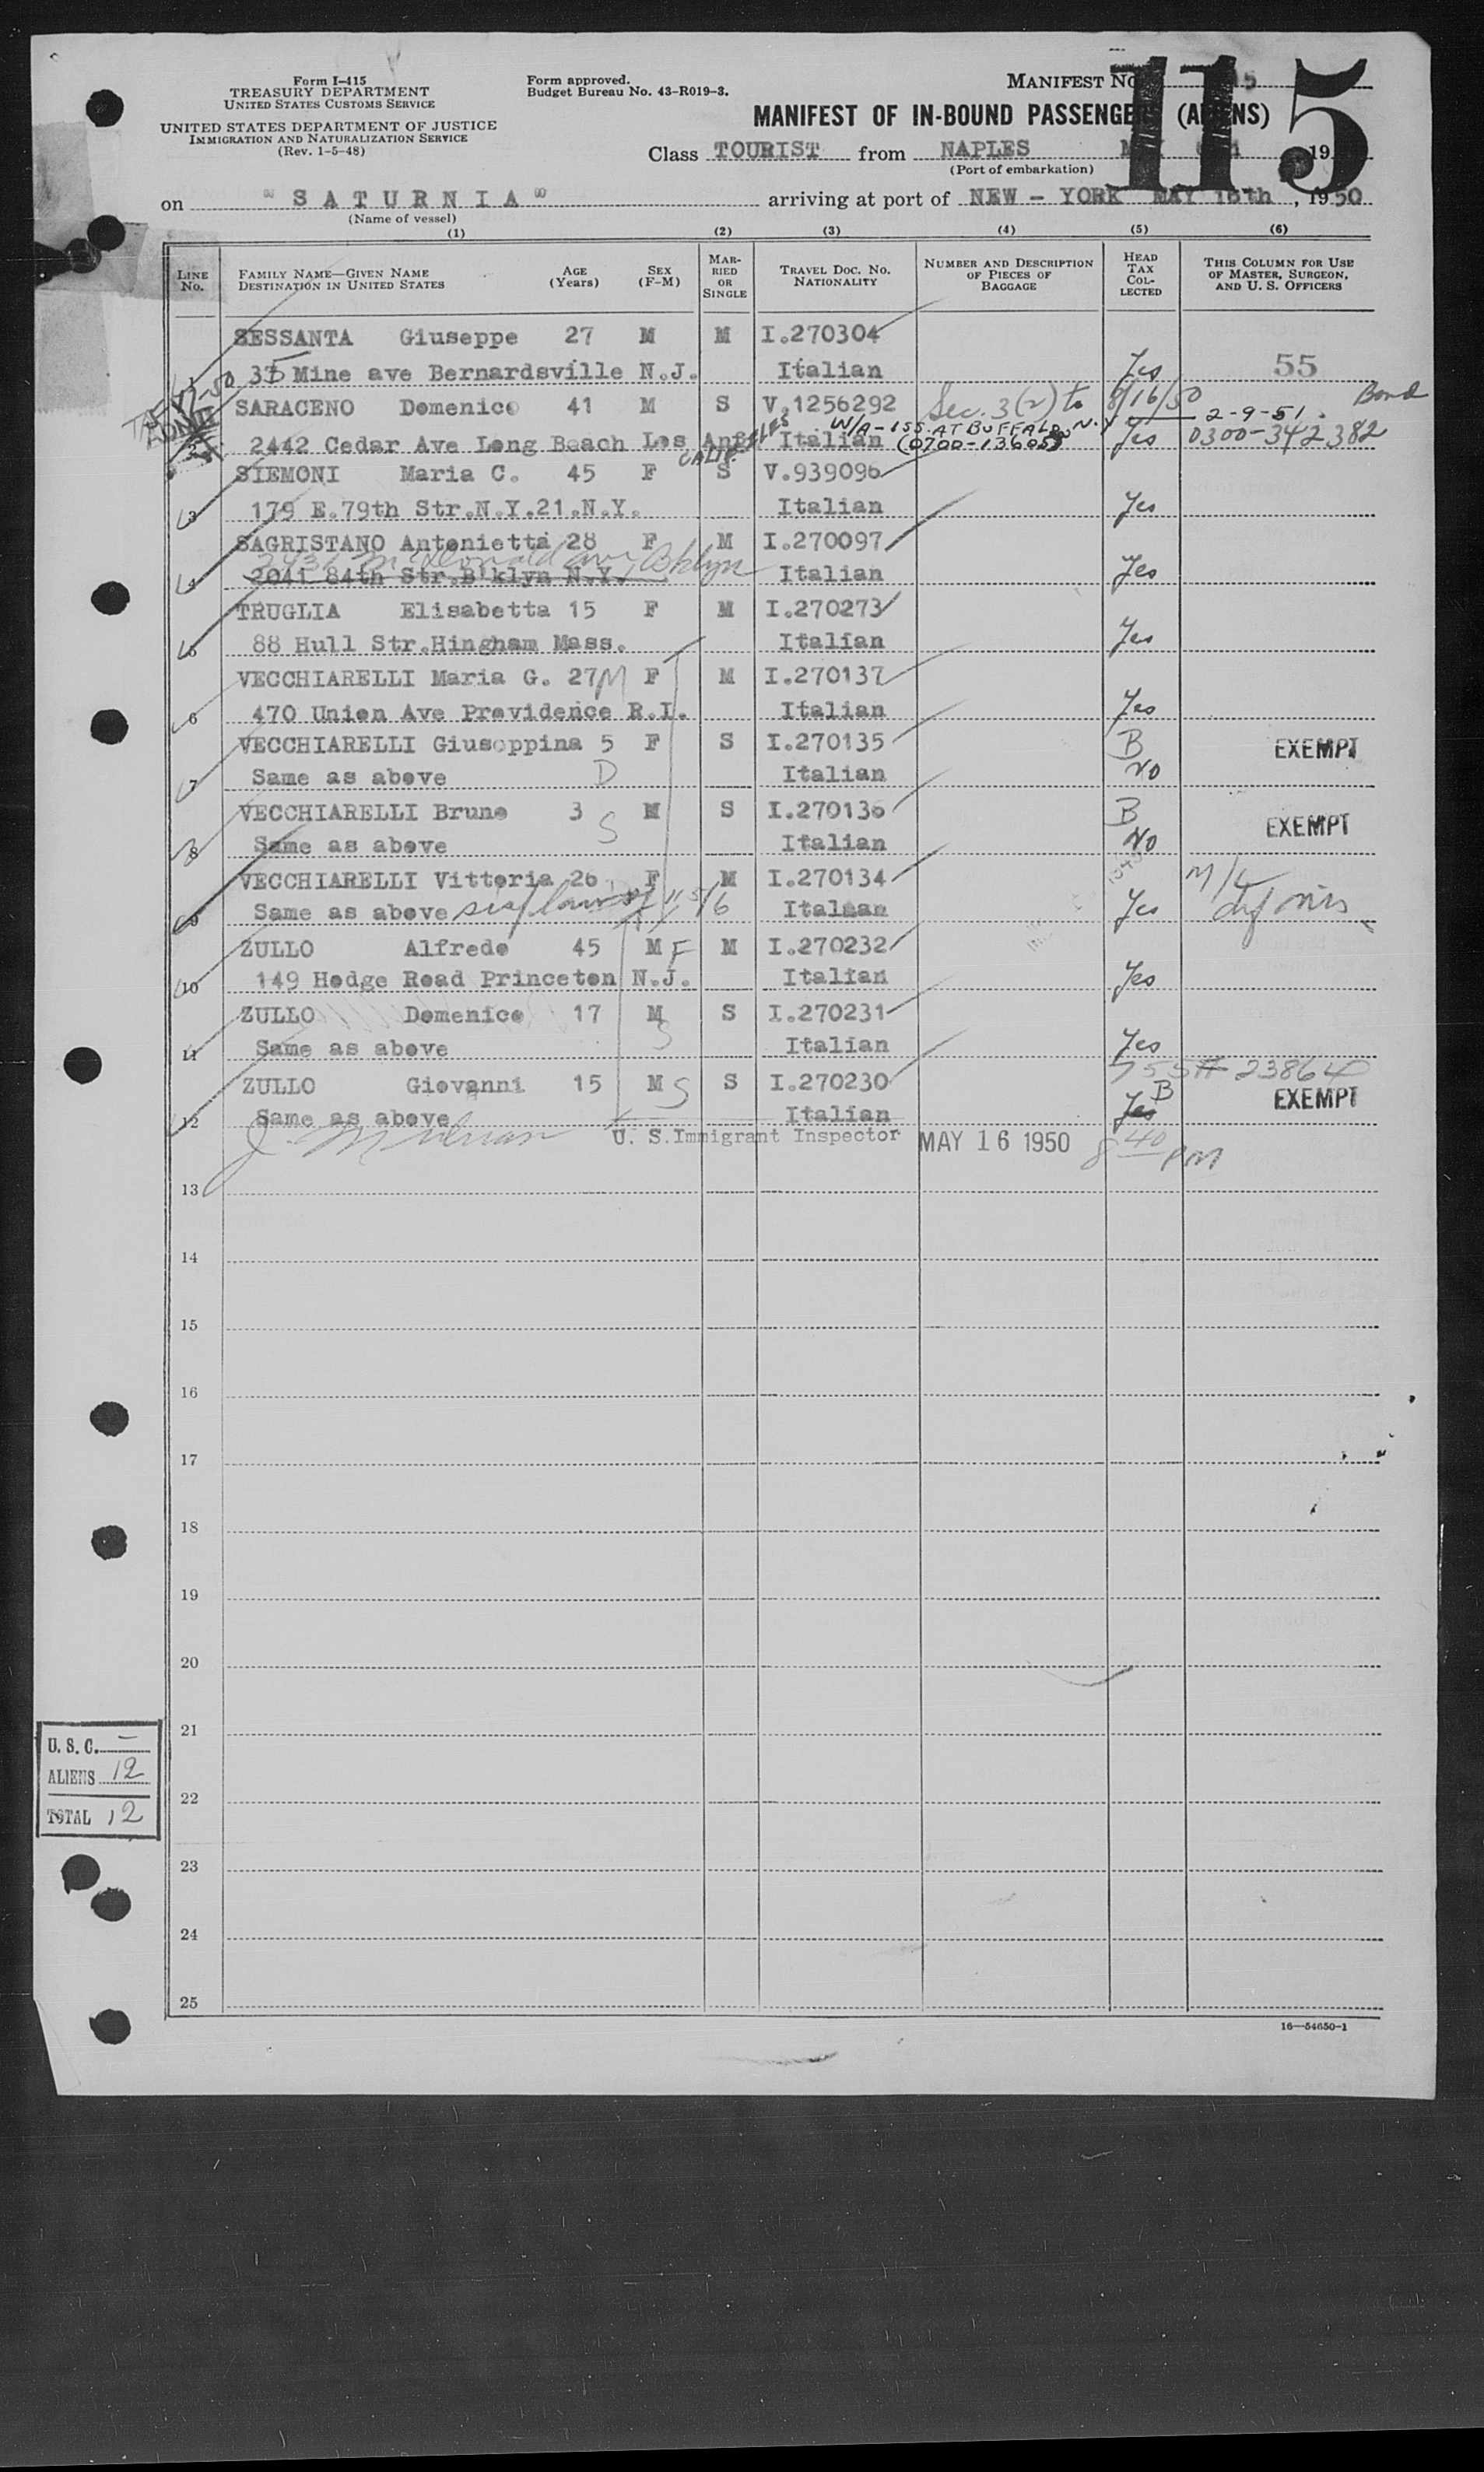 Form I-415
TREASURY DEPARTMENT
UNITED STATES CUSTOMS SERVICE
UNITED STATES DEPARTMENT OF JUSTICE
IMMIGRATION AND NATURALIZATION SERVICE
(Rev. 1-5-48)
Form approved.
Budget Bureau No. 43-R019-3.
MANIFEST NO.
115
MANIFEST OF IN-BOUND PASSENGERS (ALIENS)
Class TOURIST from NAPLES 19
(Port of embarkation)
on "SATURNIA" arriving at port of NEW - YORK MAY 16th, 1950
(Name of vessel)
(1) (2) (3) (4) (5) (6)
LINE No. FAMILY NAME—GIVEN NAME DESTINATION IN UNITED STATES AGE (Years) SEX (F-M) MARRIED OR SINGLE TRAVEL DOC. NO. NATIONALITY NUMBER AND DESCRIPTION OF PIECES OF BAGGAGE HEAD TAX COLLECTED THIS COLUMN FOR USE OF MASTER, SURGEON, AND U. S. OFFICERS
SESSANTA Giuseppe 27 M M I.270304
35 Mine ave Bernardsville N.J. Italian Yes 55
SARACENO Domenico 41 M S V.1256292 Sec. 3(2) to 8/16/50 2-9-51 Bond
W/A-155 AT BUFFALO N.Y.
2442 Cedar Ave Long Beach Los Angeles CALIF. Italian (0700-13605) Yes 0300-342382
SIEMONI Maria C. 45 F S V.939096
3 179 E.79th Str.N.Y.21.N.Y. Italian Yes
SAGRISTANO Antonietta 28 F M I.270097
McDonald ave Bklyn
4 2041 84th Str.B'klyn N.Y. Italian Yes
TRUGLIA Elisabetta 15 F M I.270273
5 88 Hull Str.Hingham Mass. Italian Yes
VECCHIARELLI Maria G. 27 M F M I.270137
6 470 Union Ave Providence R.I. Italian Yes
VECCHIARELLI Giuseppina 5 F S I.270135 B EXEMPT
7 Same as above D Italian No
VECCHIARELLI Bruno 3 M S I.270136 B EXEMPT
8 Same as above S Italian No
VECCHIARELLI Vittoria 26 F M I.270134
9 Same as above Italian Yes
ZULLO Alfredo 45 M F M I.270232
10 149 Hodge Road Princeton N.J. Italian Yes
ZULLO Domenico 17 M S I.270231
11 Same as above S Italian Yes
ZULLO Giovanni 15 M S S I.270230 B EXEMPT
12 Same as above Italian Yes
U. S. Immigrant Inspector MAY 16 1950 8 40 PM
13
14
15
16
17
18
19
20
21
U. S. C. –
ALIENS 12
22
TOTAL 12
23
24
25
16—54650-1